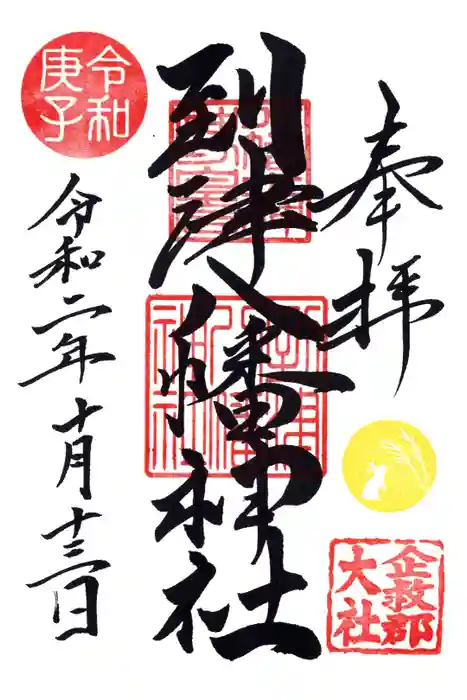 奉拝
企救郡
大社
到津八幡神社
令和
庚子
令和二年十月十三日